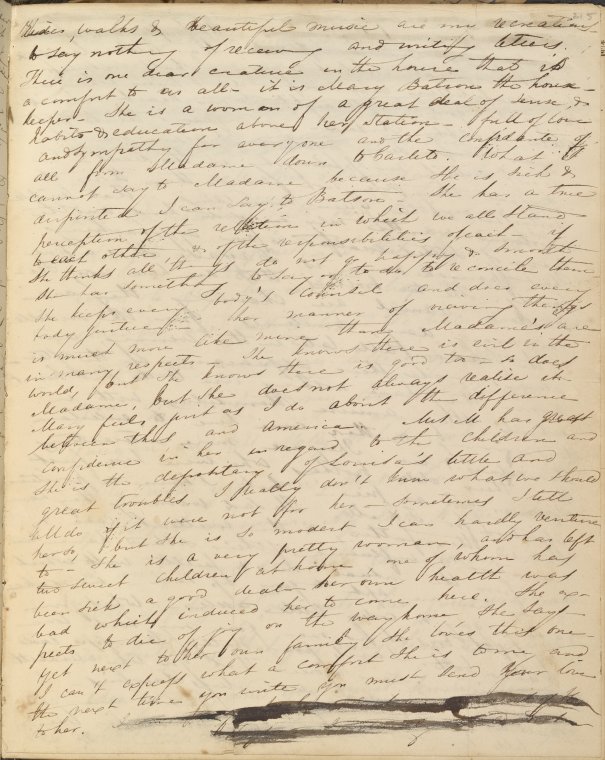 walks & beautiful music are my recreations
to say nothing of receiving and writing letters.
There is one dear creature in the house that is
a comfort to us all - it is Mary Batson the house-
keeper. She is a woman of a great deal of sense, &
habits & education above her station - full of love
and sympathy for every one and the confidante of
all from Madame down to Carlito. What I
cannot say to Madame because she is sick &
dispirited I can say to Batson. She has a true
perception of the relation in which we all stand
to each other & of the responsibilities of each - if
she thinks all things do not go happy & smooth
she has something to say or to do to reconcile them
She keeps every body's counsel and does every
body justice - her manner of viewing things
is much more like mine than Madame's are
in many respects. She knows there is evil in the
world, but she knows there is good too - so does
Madame, but she does not always realise it.
Mary feels just as I do about the difference
between this and America. Mrs M has great
confidence in her in regard to the children and
she is the depositary of Louisa's little and
great troubles. I really don't know what we should
all do if it were not for her - sometimes I tell
her so, but she is so modest I can hardly venture
to - She is a very pretty woman and has left
two sweet children at home one of whom has
been sick a good deal - her own health was
bad which induced her to come here. She ex-
pects to die of joy on the way home She says
yet next to her own family she loves this one -
I can't express what a comfort she is to me and
the next time you write you must send your love
to her.